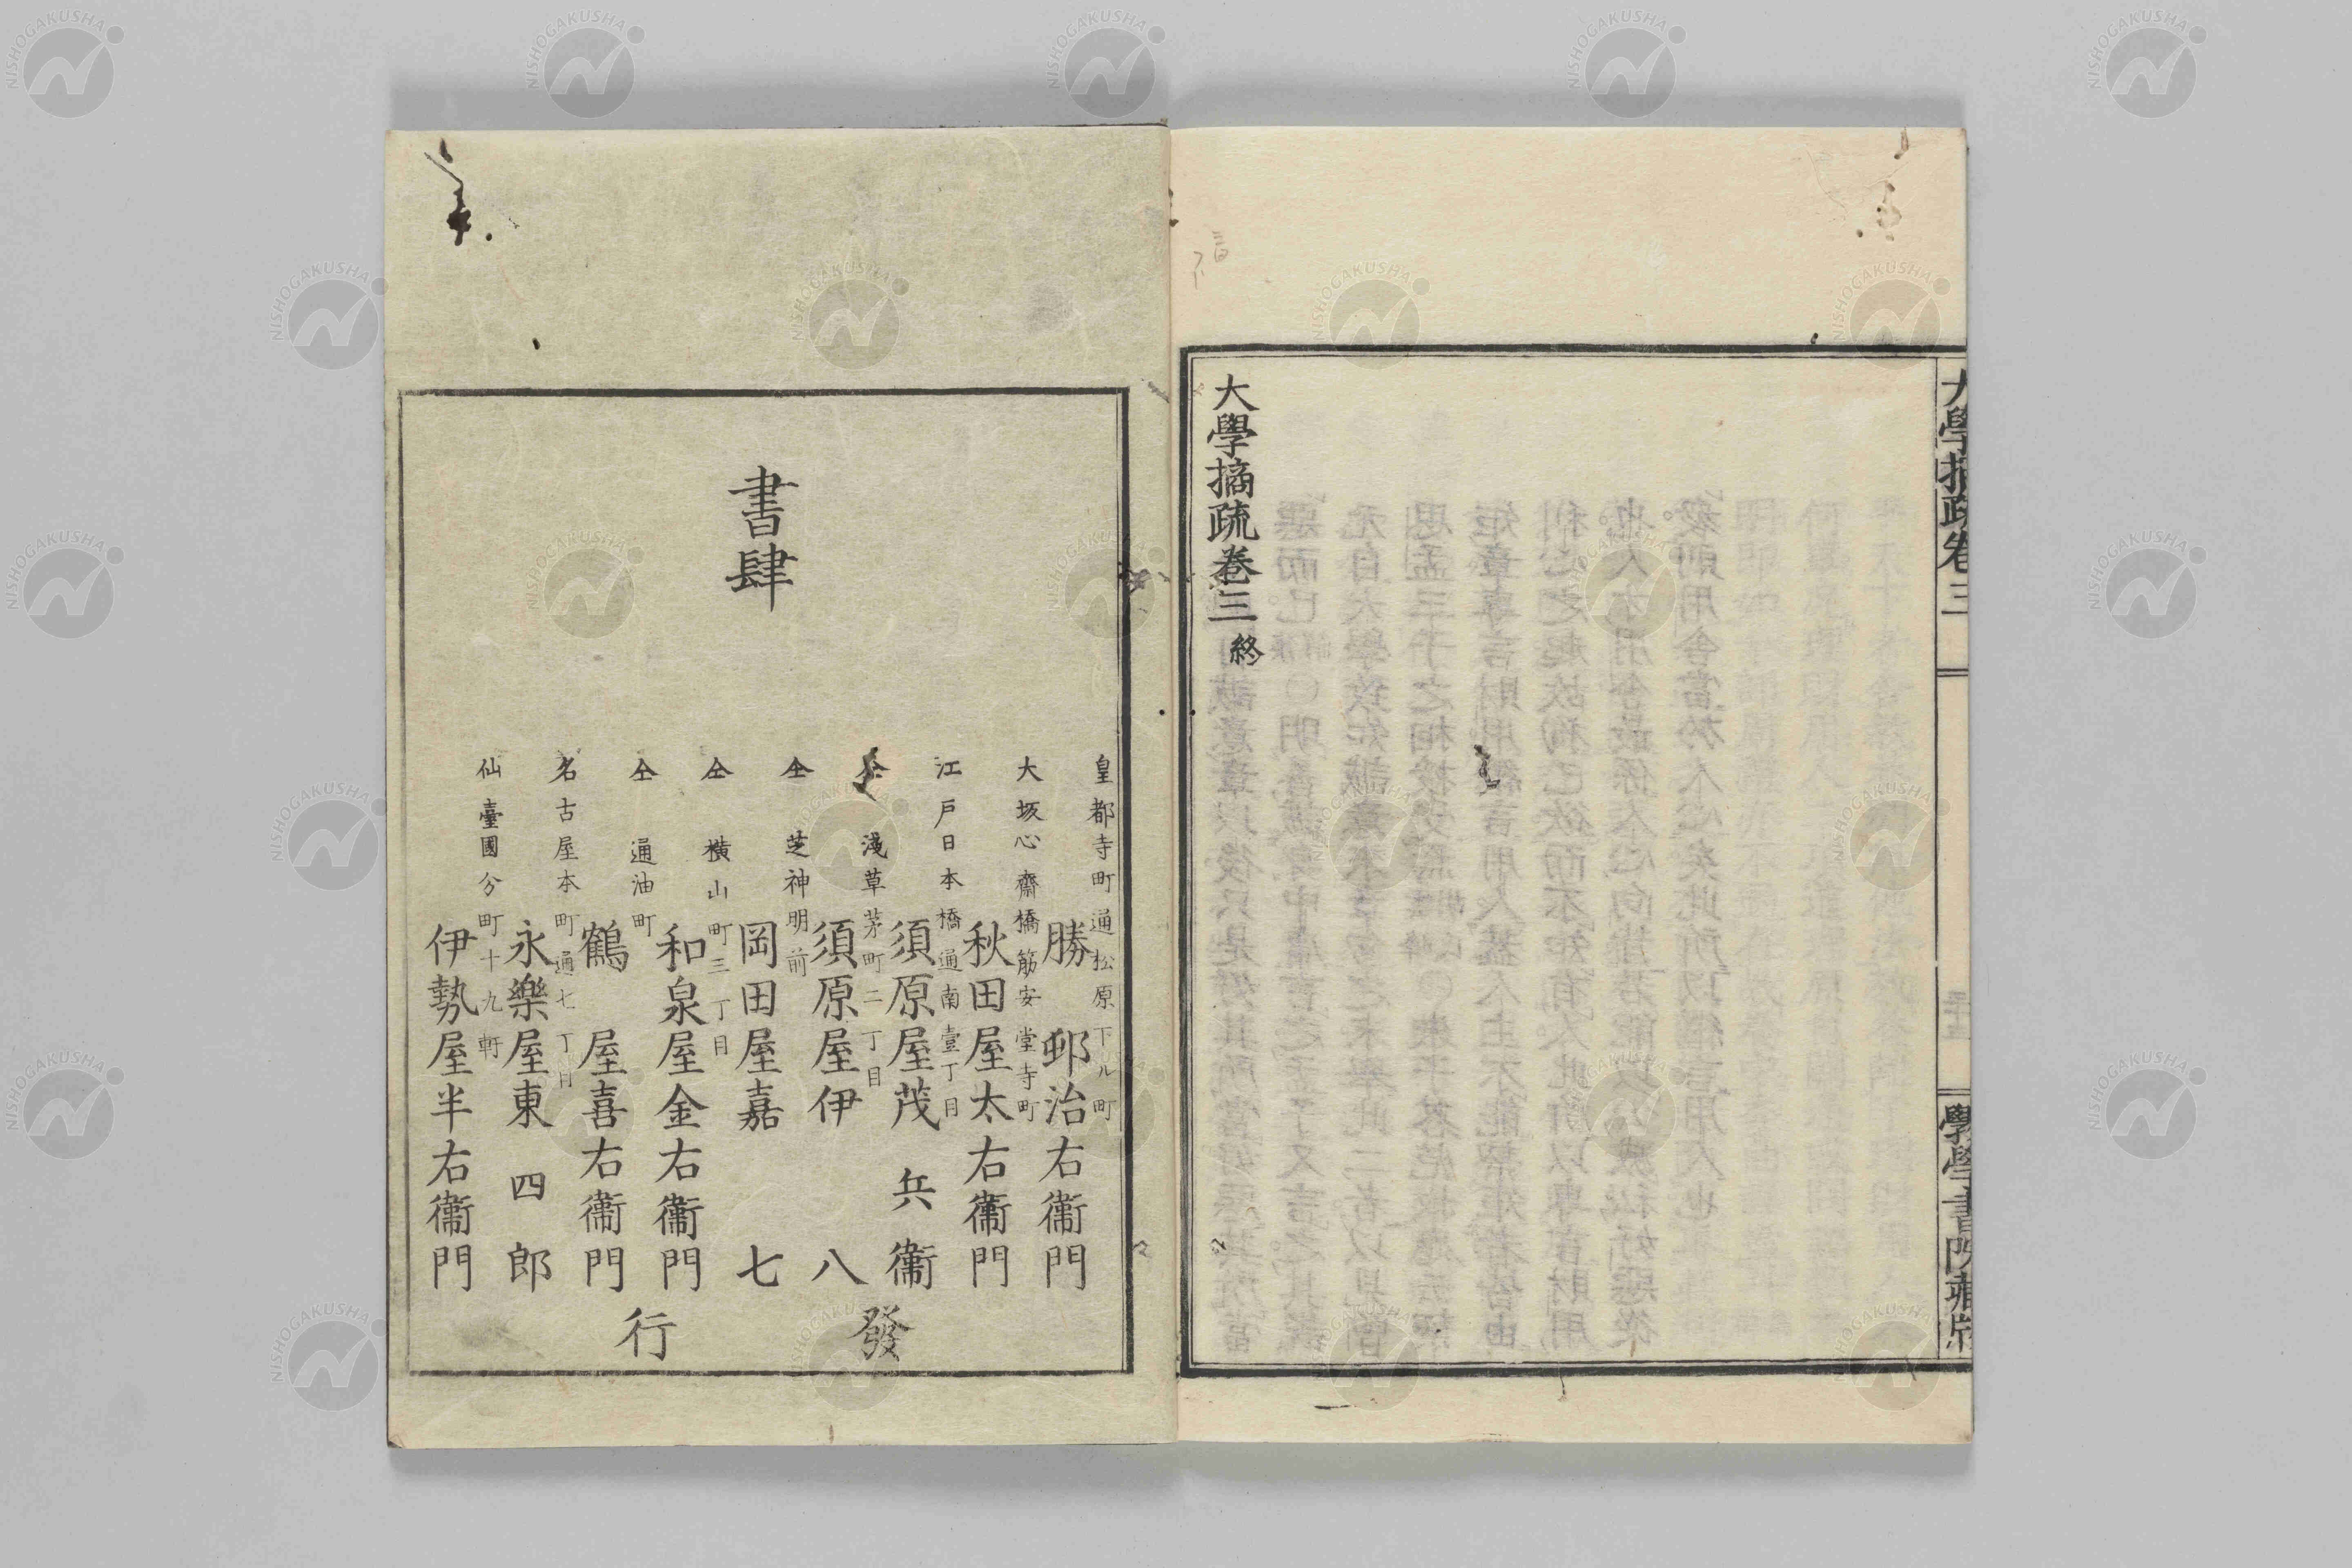 大學摘疏卷三
學學書院藏版
大學摘疏卷三終
書肆
皇都寺町通松原下ル町
勝邨治右衞門
大坂心齋橋筋安堂寺町
秋田屋太右衞門
江戸日本橋通南壹丁目
須原屋茂兵衞
仝淺草茅町二丁目
須原屋伊八
仝芝神明前
岡田屋嘉七
仝横山町三丁目
和泉屋金右衞門
仝通油町
鶴屋喜右衞門
名古屋本町通七丁目
永樂屋東四郎
仙臺國分町十九軒
伊勢屋半右衞門
發行
NISHOGAKUSHA